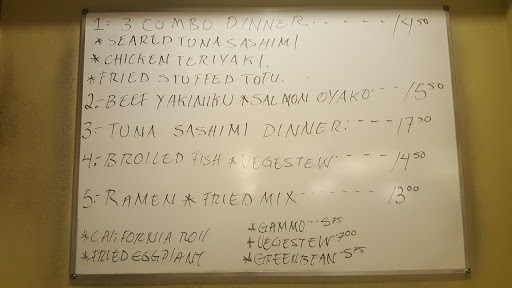 1- 3 COMBO DINNER---- 14.50
*SEARED TUNA SASHIMI
*CHICKEN TERIYAKI.
*FRIED STUFFED TOFU.
2.-BEEF YAKINIKU *SALMON OYAKO--- 15.50
3- TUNA SASHIMI DINNER:--- 17.50
4.- BROILED FISH *VEGESTEW---- 14.50
5- RAMEN * FRIED MIX------- 13.00
*CALIFORNIA ROLL
*FRIED EGGPLANT
*GAMMO---5.75
*VEGESTEW-7.00
*GREENBEAN-5.75